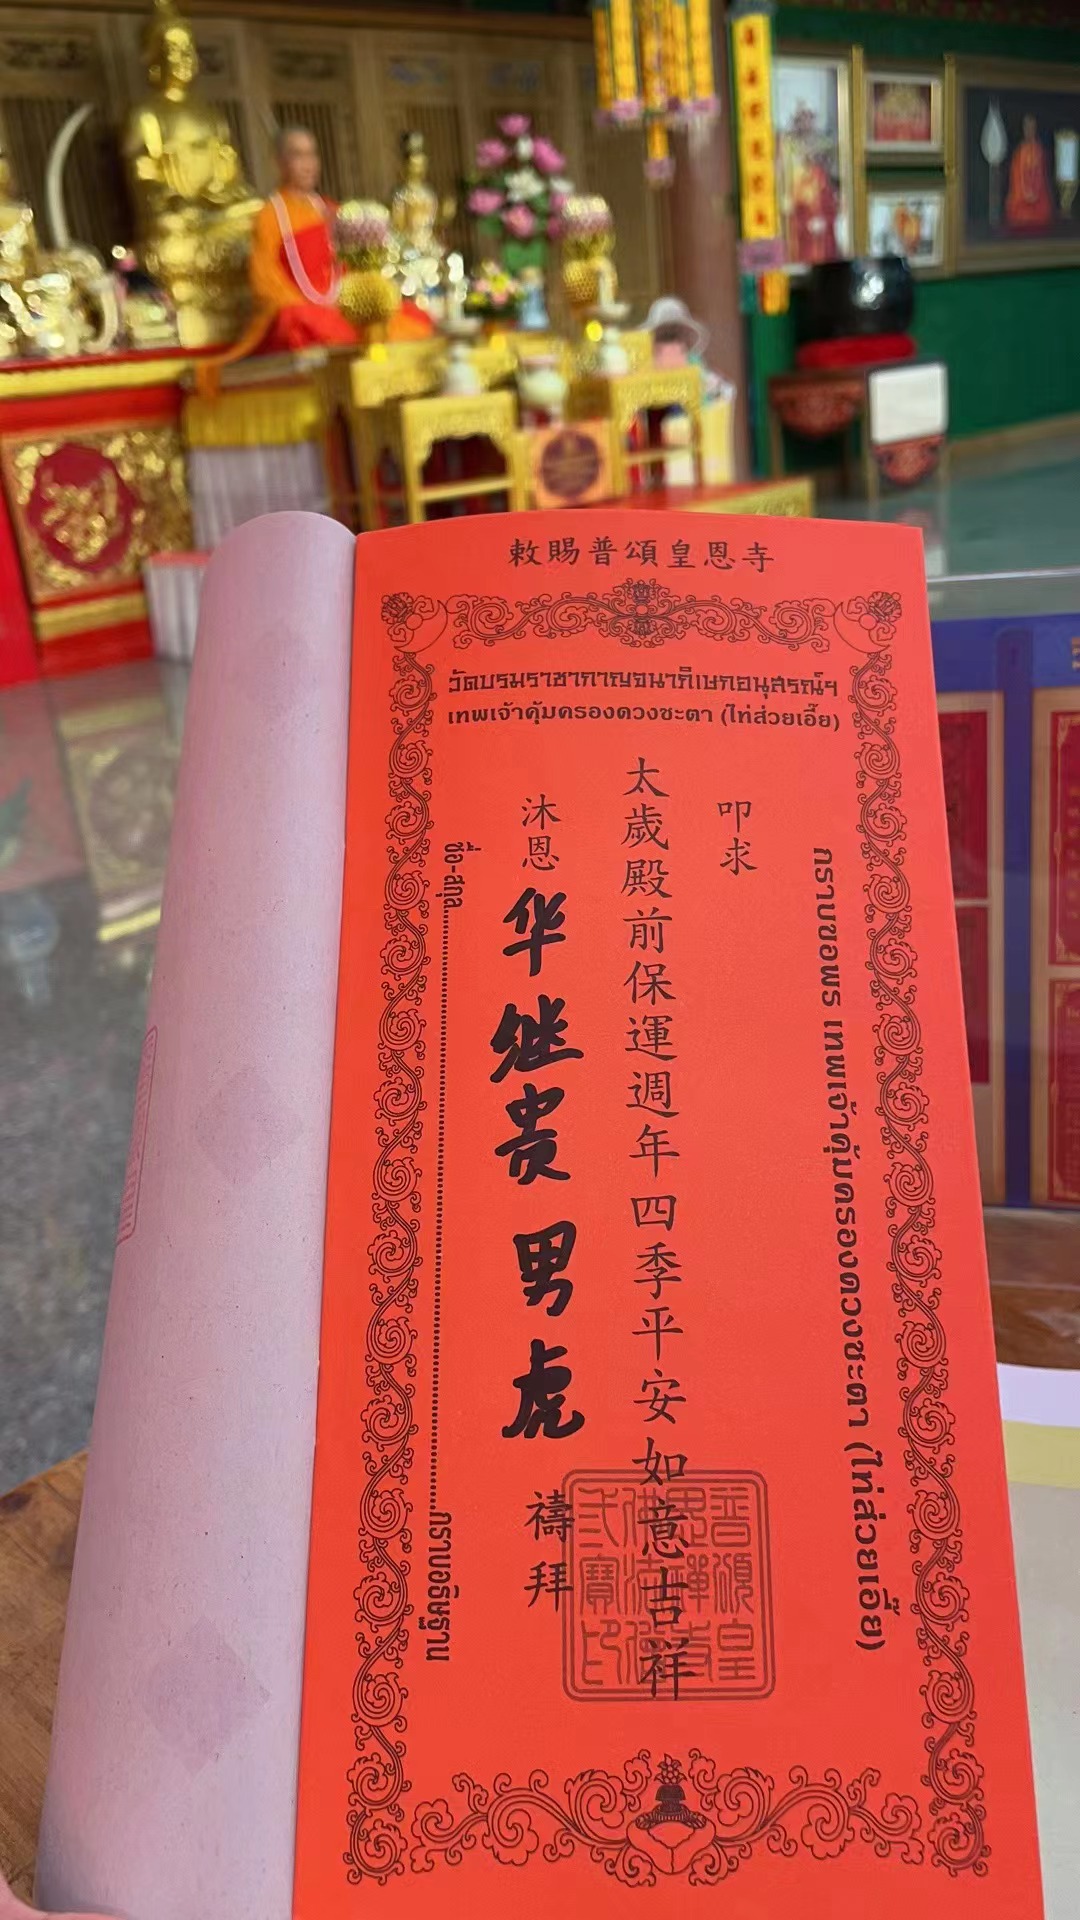 敕賜普頌皇恩寺
วัดบรมราชากาญจนาภิเษกอนุสรณ์ฯ
เทพเจ้าคุ้มครองดวงชะตา (ไท่ส่วยเอี๊ย)
กราบขอพร เทพเจ้าคุ้มครองดวงชะตา (ไท่ส่วยเอี๊ย)
叩求
太歲殿前保運週年四季平安如意吉祥
沐恩 华继贵 男虎 禱拜
ชื่อ-สกุล........กราบอธิษฐาน